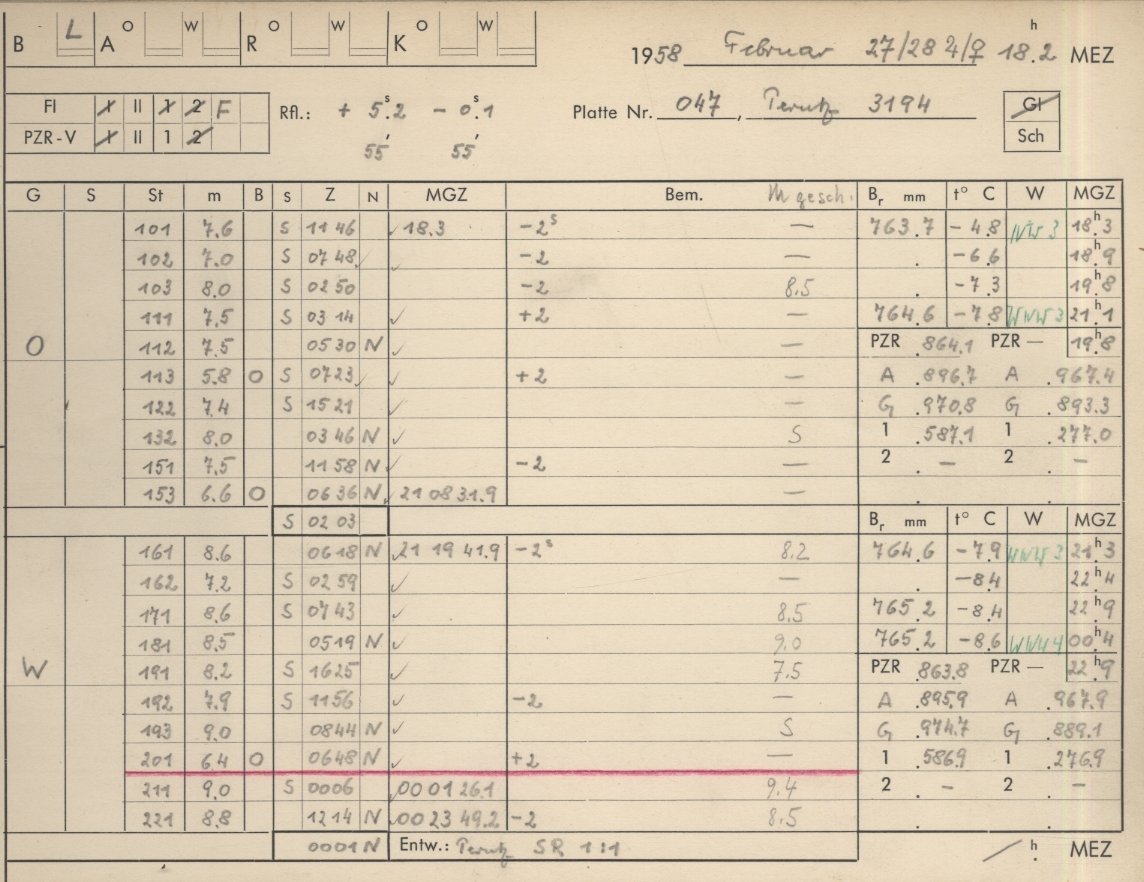 h
B L A O W R O W K O W
1958 Februar 27/28 ♃/♀ 18.2 MEZ
FI I II 1 2 F Rfl.: + 5.ˢ2 − 0.ˢ1 Platte Nr. 047, Perutz 3194 Gl
PZR-V I II 1 2 55' 55' Sch
G S St m B S Z N MGZ Bem. M gesch. Br mm t° C W MGZ
101 7.6 S 11 46 ✓ 18.3 −2ˢ — 763.7 −4.8 NW 3 18ʰ.3
102 7.0 S 07 48 ✓ −2 — . −6.6 18ʰ.9
103 8.0 S 02 50 −2 8.5 . −7.3 19ʰ.8
111 7.5 S 03 14 ✓ +2 — 764.6 −7.8 WNW 3 21ʰ.1
O 112 7.5 05 30 N ✓ — PZR .864.1 PZR — 19ʰ.8
113 5.8 O S 07 23 ✓ +2 — A .896.7 A .967.4
122 7.4 S 15 21 ✓ — G .970.8 G .893.3
132 8.0 03 46 N ✓ S 1 .587.1 1 .277.0
151 7.5 11 58 N ✓ −2 — 2 . — 2 . —
153 6.6 O 06 36 N ✓ 21 08 31.9 — . .
S 02 03 Br mm t° C W MGZ
161 8.6 06 18 N ✓ 21 19 41.9 −2ˢ 8.2 764.6 −7.9 WNW 3 21ʰ.3
162 7.2 S 02 59 ✓ — . −8.4 22ʰ.4
171 8.6 S 07 43 ✓ 8.5 765.2 −8.4 22ʰ.9
181 8.5 05 19 N ✓ 9.0 765.2 −8.6 00ʰ.4
W 191 8.2 S 16 25 ✓ 7.5 PZR .863.8 PZR — 22ʰ.9
192 7.9 S 11 56 ✓ −2 — A .895.9 A .967.9
193 9.0 08 44 N ✓ S G .974.7 G .889.1
201 6.4 O 06 48 N ✓ +2 — 1 .586.9 1 .276.9
211 9.0 S 00 06 ✓ 00 01 26.1 9.4 2 . — 2 . —
221 8.8 12 14 N ✓ 00 23 49.2 −2 8.5 . .
00 01 N Entw.: Perutz SR 1:1 / ʰ. MEZ